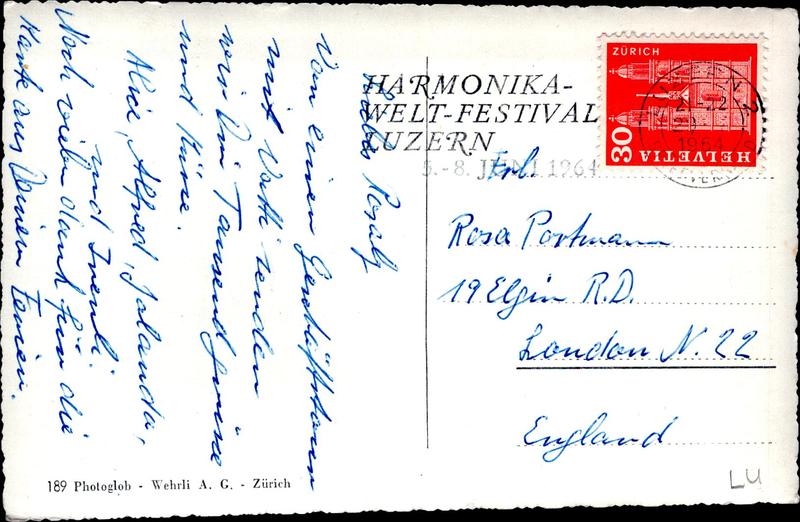 Liebes Rosali
Von einem Geschäftstour
mit Vatti senden
wir Dir Tausend Grüsse
und Küsse.
Alice, Alfred, Jolanda,
und Vreneli.
Noch vielen dank für die
Karte aus Deinem Ferien.
189 Photoglob - Wehrli A. G. - Zürich
HARMONIKA-
WELT-FESTIVAL
LUZERN
5.-8. JUNI 1964
ZÜRICH
30
HELVETIA
LUZERN 2
1964
Frl.
Rosa Portmann
19 Elgin R.D.
London N. 22
England
LU